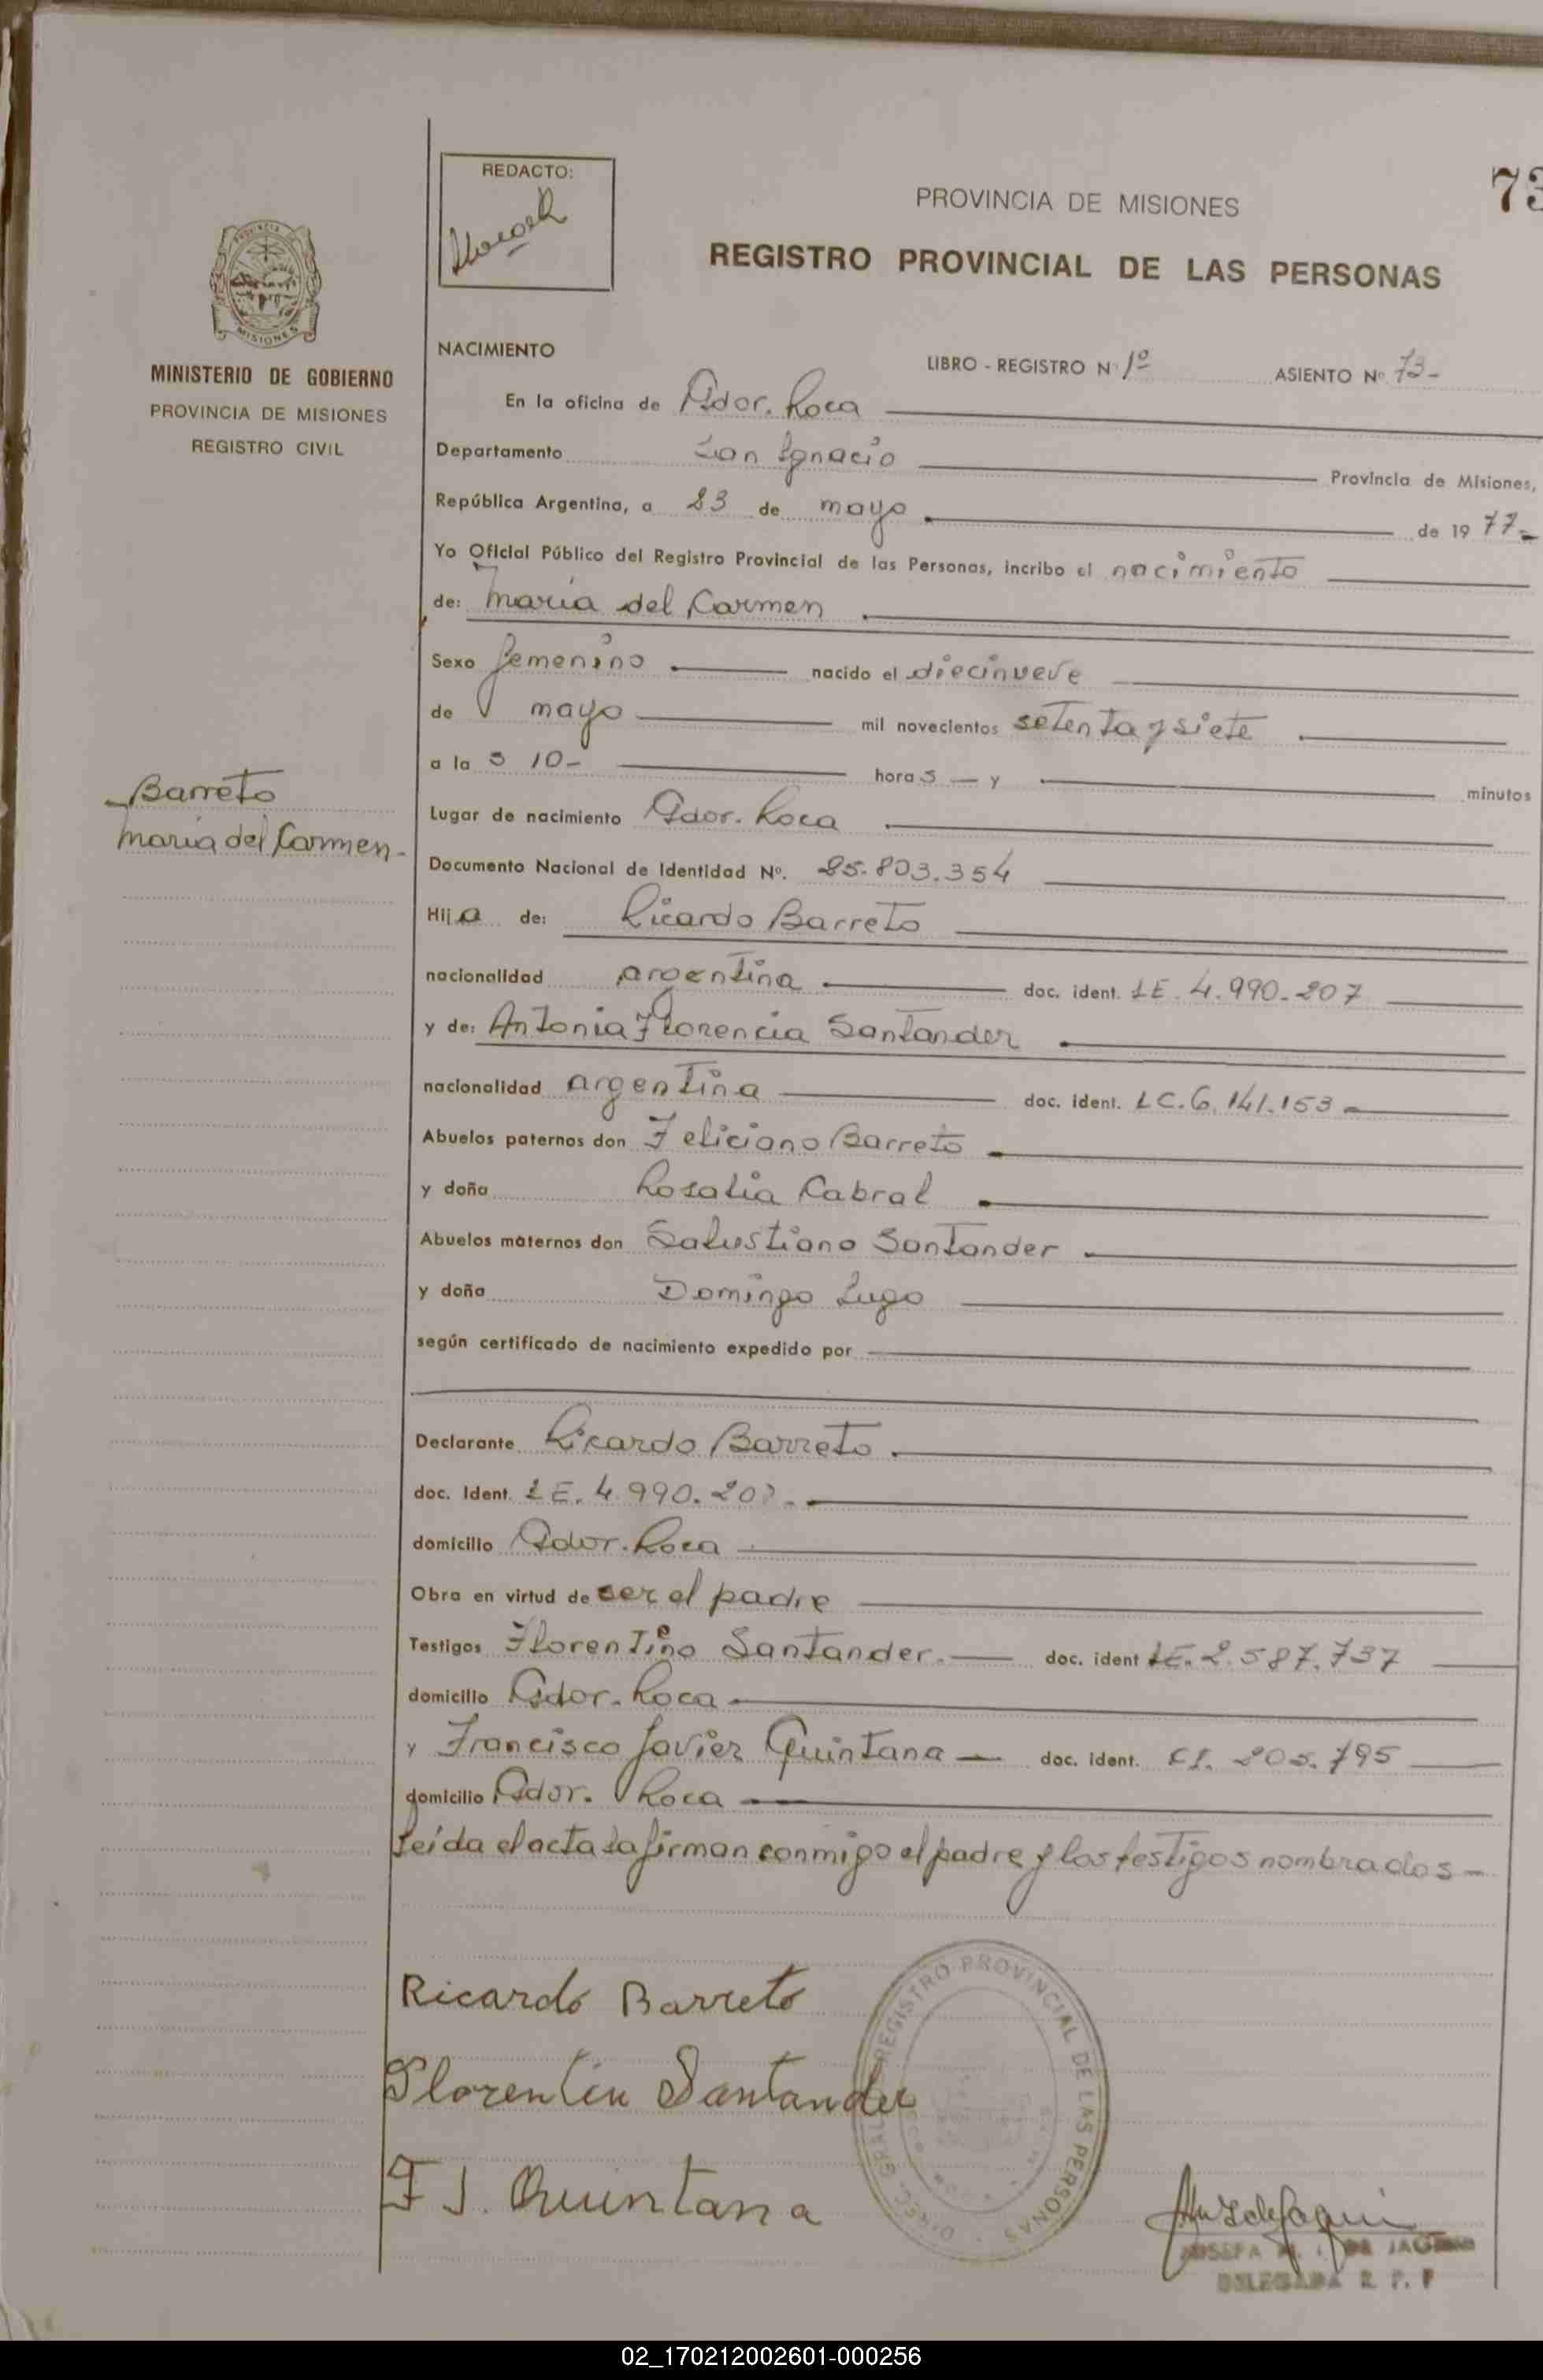 73
REDACTO:
PROVINCIA DE MISIONES
REGISTRO PROVINCIAL DE LAS PERSONAS
MISIONES
MINISTERIO DE GOBIERNO
PROVINCIA DE MISIONES
REGISTRO CIVIL
NACIMIENTO
LIBRO - REGISTRO N 1º ASIENTO Nº 73-
En la oficina de Gdor. Roca
Departamento San Ignacio Provincia de Misiones,
República Argentina, a 23 de mayo de 1977-
Yo Oficial Público del Registro Provincial de las Personas, incribo el nacimiento
de: María del Carmen
Sexo femenino nacido el diecinueve
de mayo mil novecientos setenta y siete
a la s 10- hora s — y minutos
Barreto
María del Carmen-
Lugar de nacimiento Gdor. Roca
Documento Nacional de Identidad Nº. 25.803.354
Hij a de: Ricardo Barreto
nacionalidad argentina doc. ident. LE. 4.990.207
y de: Antonia Florencia Santander
nacionalidad argentina doc. ident. LC. 6.141.153-
Abuelos paternos don Feliciano Barreto
y doña Rosalia Cabral
Abuelos maternos don Salustiano Santander
y doña Domingo Lugo
según certificado de nacimiento expedido por
Declarante Ricardo Barreto
doc. Ident. LE. 4.990.207-
domicilio Gdor. Roca
Obra en virtud de ser el padre
Testigos Florentino Santander. doc. ident LE. 2.587.737
domicilio Gdor. Roca
y Francisco Javier Quintana doc. ident. CI. 205.795
domicilio Gdor. Roca
Leída el acta la firman conmigo el padre y los testigos nombrados-
Ricardo Barreto
Florentin Santander
F J. Quintana
DIREC. GRAL. REGISTRO PROVINCIAL DE LAS PERSONAS
JOSEFA DE
DELEGADA R. P. P
02_170212002601-000256